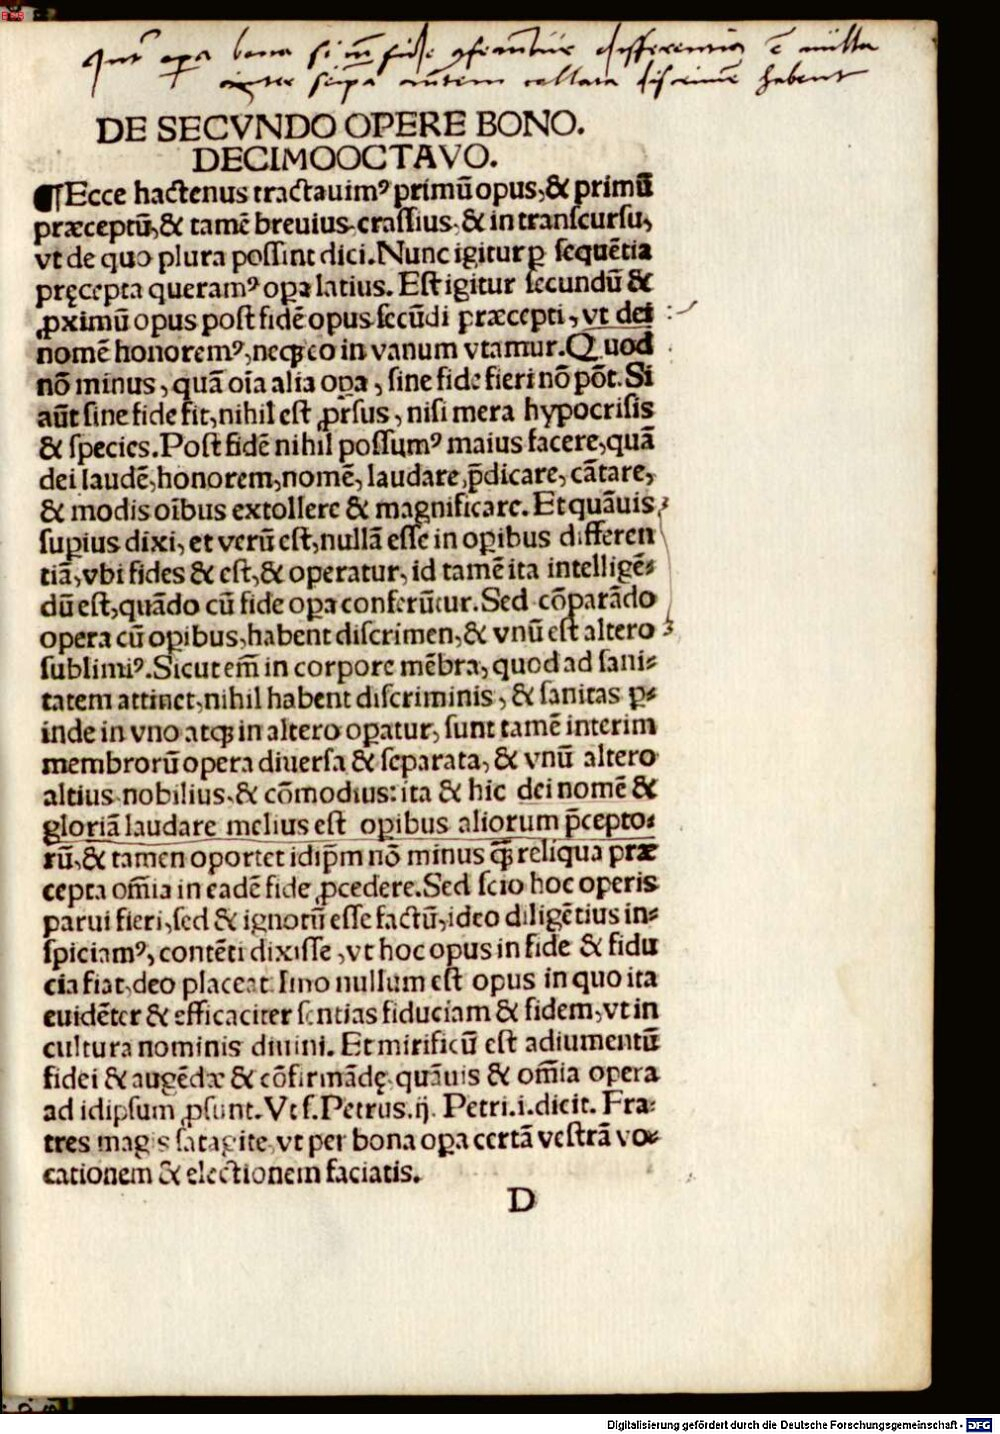 Int' opera bona si cum fide conferantur differentia est nulla
inter seipsa autem collata discrimen habent
DE SECVNDO OPERE BONO.
DECIMOOCTAVO.
¶Ecce hactenus tractauimꝰ primū opus, & primū
præceptū, & tamē breuius, crassius, & in transcursu,
vt de quo plura possint dici. Nunc igitur ꝑ sequētia
pręcepta queramꝰ oꝑa latius. Est igitur secundū &
ꝓximū opus post fidē opus secūdi præcepti, vt dei
nomē honoremꝰ, neqꝫ eo in vanum vtamur. Quod
nō minus, quā oīa alia oꝑa, sine fide fieri nō pōt. Si
aūt sine fide fit, nihil est ꝓrsus, nisi mera hypocrisis
& species. Post fidē nihil possumꝰ maius facere, quā
dei laudē, honorem, nomē, laudare, p̄dicare, cātare,
& modis oībus extollere & magnificare. Et quāuis
suꝑius dixi, et verū est, nullā esse in oꝑibus differen
tiā, vbi fides & est, & operatur, id tamē ita intelligē⸗
dū est, quādo cū fide oꝑa conferūtur. Sed cōparādo
opera cū oꝑibus, habent discrimen, & vnū est altero
sublimiꝰ. Sicut em̄ in corpore mēbra, quod ad sani⸗
tatem attinet, nihil habent discriminis, & sanitas ꝑ⸗
inde in vno atqꝫ in altero oꝑatur, sunt tamē interim
membrorū opera diuersa & separata, & vnū altero
altius, nobilius, & cōmodius: ita & hic dei nomē &
gloriā laudare melius est oꝑibus aliorum p̄cepto⸗
rū, & tamen oportet idip̄m nō minus qꝫ̄ reliqua præ
cepta om̄ia in eadē fide ꝓcedere. Sed scio hoc operis
parui fieri, sed & ignotū esse factū, ideo diligētius in⸗
spiciamꝰ, contēti dixisse, vt hoc opus in fide & fidu
cia fiat, deo placeat. Imo nullum est opus in quo ita
euidēter & efficaciter sentias fiduciam & fidem, vt in
cultura nominis diuini. Et mirificū est adiumentū
fidei & augēdæ & cōfirmādę, quāuis & om̄ia opera
ad idipsum ꝓsunt. Vt s. Petrus. ij. Petri. i. dicit. Fra⸗
tres magis satagite, vt per bona oꝑa certā vestrā vo⸗
cationem & electionem faciatis.
D
Digitalisierung gefördert durch die Deutsche Forschungsgemeinschaft - DFG